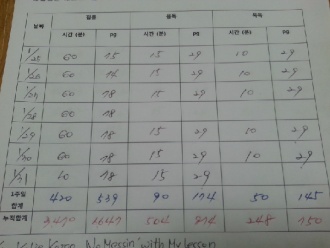 날짜
시간 (분) pg 시간 (분) pg 시간 (분) pg
1/25 60 15 15 29 10 29
1/26 60 14 15 29 10 29
1/27 60 18 15 29 10 29
1/28 60 18
1/29 60 18 15 29 10 29
1/30 60 18 15 29 10 29
1/31 60 18 15 29
1주일 합계 420 539 90 174 50 145
누적합계 504 248 750
No Messin' with My Lesson